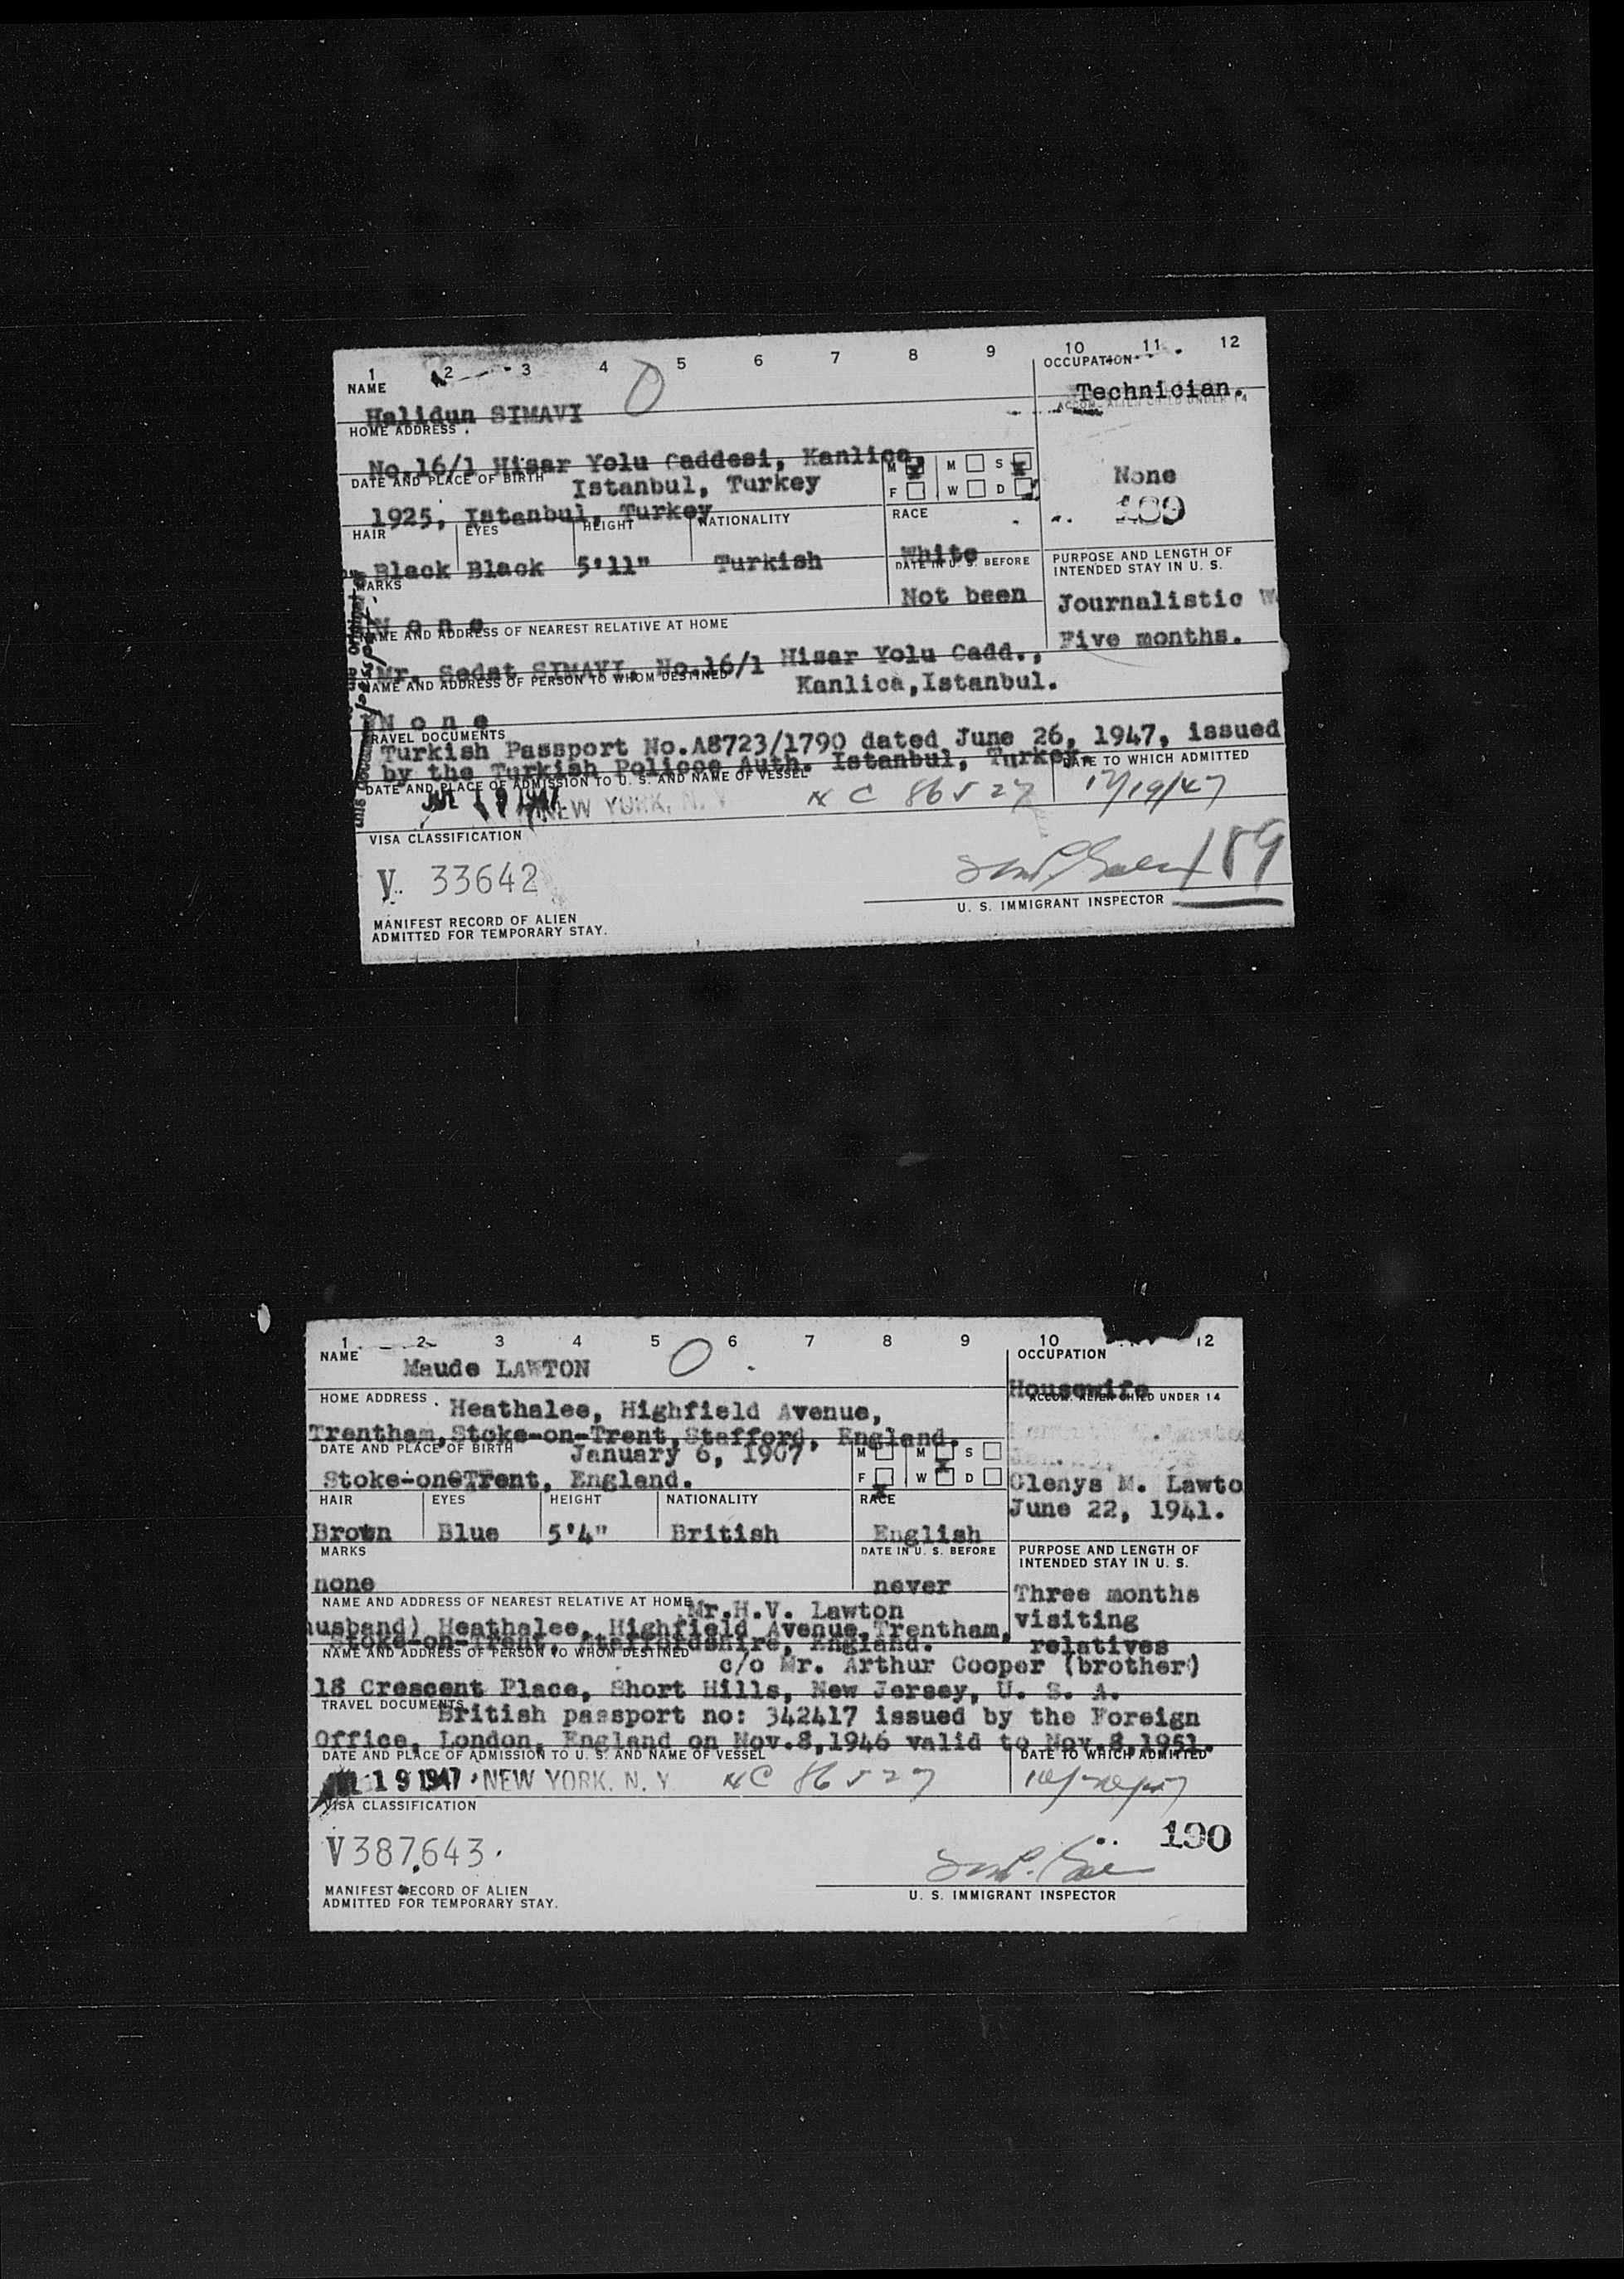 1 2 3 4 5 6 7 8 9 10 11 12
NAME
Halidun SIMAVI
OCCUPATION
Technician.
ACCOM. ALIEN CHILD UNDER 14
None
189
HOME ADDRESS
No.16/1 Hisar Yolu Caddesi, Kanlica,
Istanbul, Turkey
M M S
F W D
DATE AND PLACE OF BIRTH
1925, Istanbul, Turkey
HAIR EYES HEIGHT NATIONALITY RACE
Black Black 5'11" Turkish White
MARKS
None
DATE IN U. S. BEFORE
Not been
PURPOSE AND LENGTH OF
INTENDED STAY IN U. S.
Journalistic
Five months.
NAME AND ADDRESS OF NEAREST RELATIVE AT HOME
Mr. Sedat SIMAVI, No.16/1 Hisar Yolu Cadd.,
Kanlica,Istanbul.
NAME AND ADDRESS OF PERSON TO WHOM DESTINED
None
TRAVEL DOCUMENTS
Turkish Passport No.A8723/1790 dated June 26, 1947, issued
by the Turkish Policoe Auth. Istanbul, Turkey.
DATE AND PLACE OF ADMISSION TO U. S. AND NAME OF VESSEL
DATE TO WHICH ADMITTED
JUL 19 1947 NEW YORK, N. Y. NC 86527 12/19/47
VISA CLASSIFICATION
V. 33642
189
U. S. IMMIGRANT INSPECTOR
MANIFEST RECORD OF ALIEN
ADMITTED FOR TEMPORARY STAY.
1 2 3 4 5 6 7 8 9 10 12
NAME
Maude LAWTON
OCCUPATION
Housewife
ACCOM. ALIEN CHILD UNDER 14
Glenys M. Lawto
June 22, 1941.
HOME ADDRESS
Heathalee, Highfield Avenue,
Trentham,Stoke-on-Trent,Stafford, England.
DATE AND PLACE OF BIRTH
January 6, 1907
Stoke-on-Trent, England.
M M S
F W D
HAIR EYES HEIGHT NATIONALITY RACE
Brown Blue 5'4" British English
MARKS
none
DATE IN U. S. BEFORE
never
PURPOSE AND LENGTH OF
INTENDED STAY IN U. S.
Three months
visiting
relatives
NAME AND ADDRESS OF NEAREST RELATIVE AT HOME
Mr.H.V. Lawton
usband) Heathalee, Highfield Avenue,Trentham,
Stoke-on-Trent, Staffordshire, England.
NAME AND ADDRESS OF PERSON TO WHOM DESTINED
c/o Mr. Arthur Cooper (brother)
18 Crescent Place, Short Hills, New Jersey, U. S. A.
TRAVEL DOCUMENTS
British passport no: 342417 issued by the Foreign
Office, London, England on Nov.8,1946 valid to Nov.8,1951.
DATE AND PLACE OF ADMISSION TO U. S. AND NAME OF VESSEL
DATE TO WHICH ADMITTED
JUL 19 1947 NEW YORK, N. Y. NC 86527
VISA CLASSIFICATION
V387,643.
190
U. S. IMMIGRANT INSPECTOR
MANIFEST RECORD OF ALIEN
ADMITTED FOR TEMPORARY STAY.